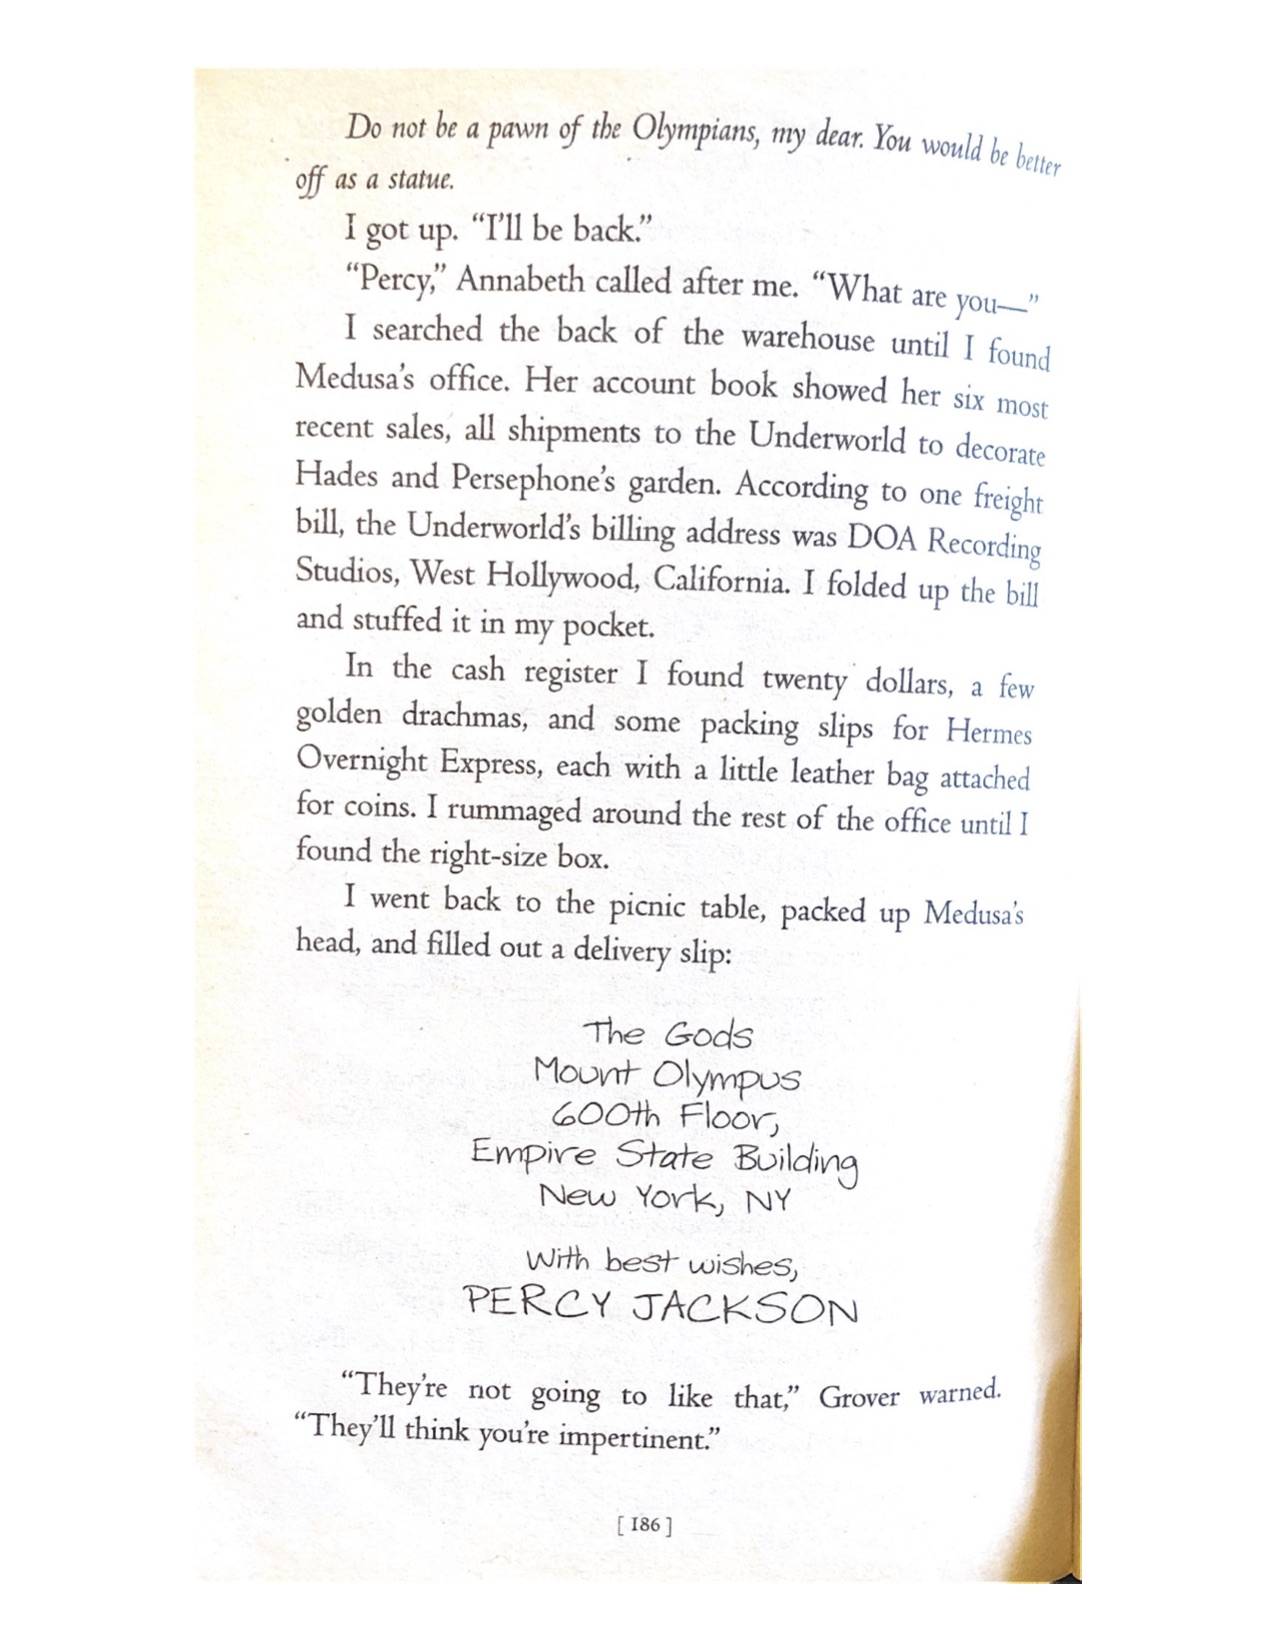 Do not be a pawn of the Olympians, my dear. You would be better
off as a statue.
I got up. “I’ll be back.”
“Percy,” Annabeth called after me. “What are you—”
I searched the back of the warehouse until I found
Medusa’s office. Her account book showed her six most
recent sales, all shipments to the Underworld to decorate
Hades and Persephone’s garden. According to one freight
bill, the Underworld’s billing address was DOA Recording
Studios, West Hollywood, California. I folded up the bill
and stuffed it in my pocket.
In the cash register I found twenty dollars, a few
golden drachmas, and some packing slips for Hermes
Overnight Express, each with a little leather bag attached
for coins. I rummaged around the rest of the office until I
found the right-size box.
I went back to the picnic table, packed up Medusa’s
head, and filled out a delivery slip:
The Gods
Mount Olympus
600th Floor,
Empire State Building
New York, NY
With best wishes,
PERCY JACKSON
“They’re not going to like that,” Grover warned.
“They’ll think you’re impertinent.”
[ 186 ]